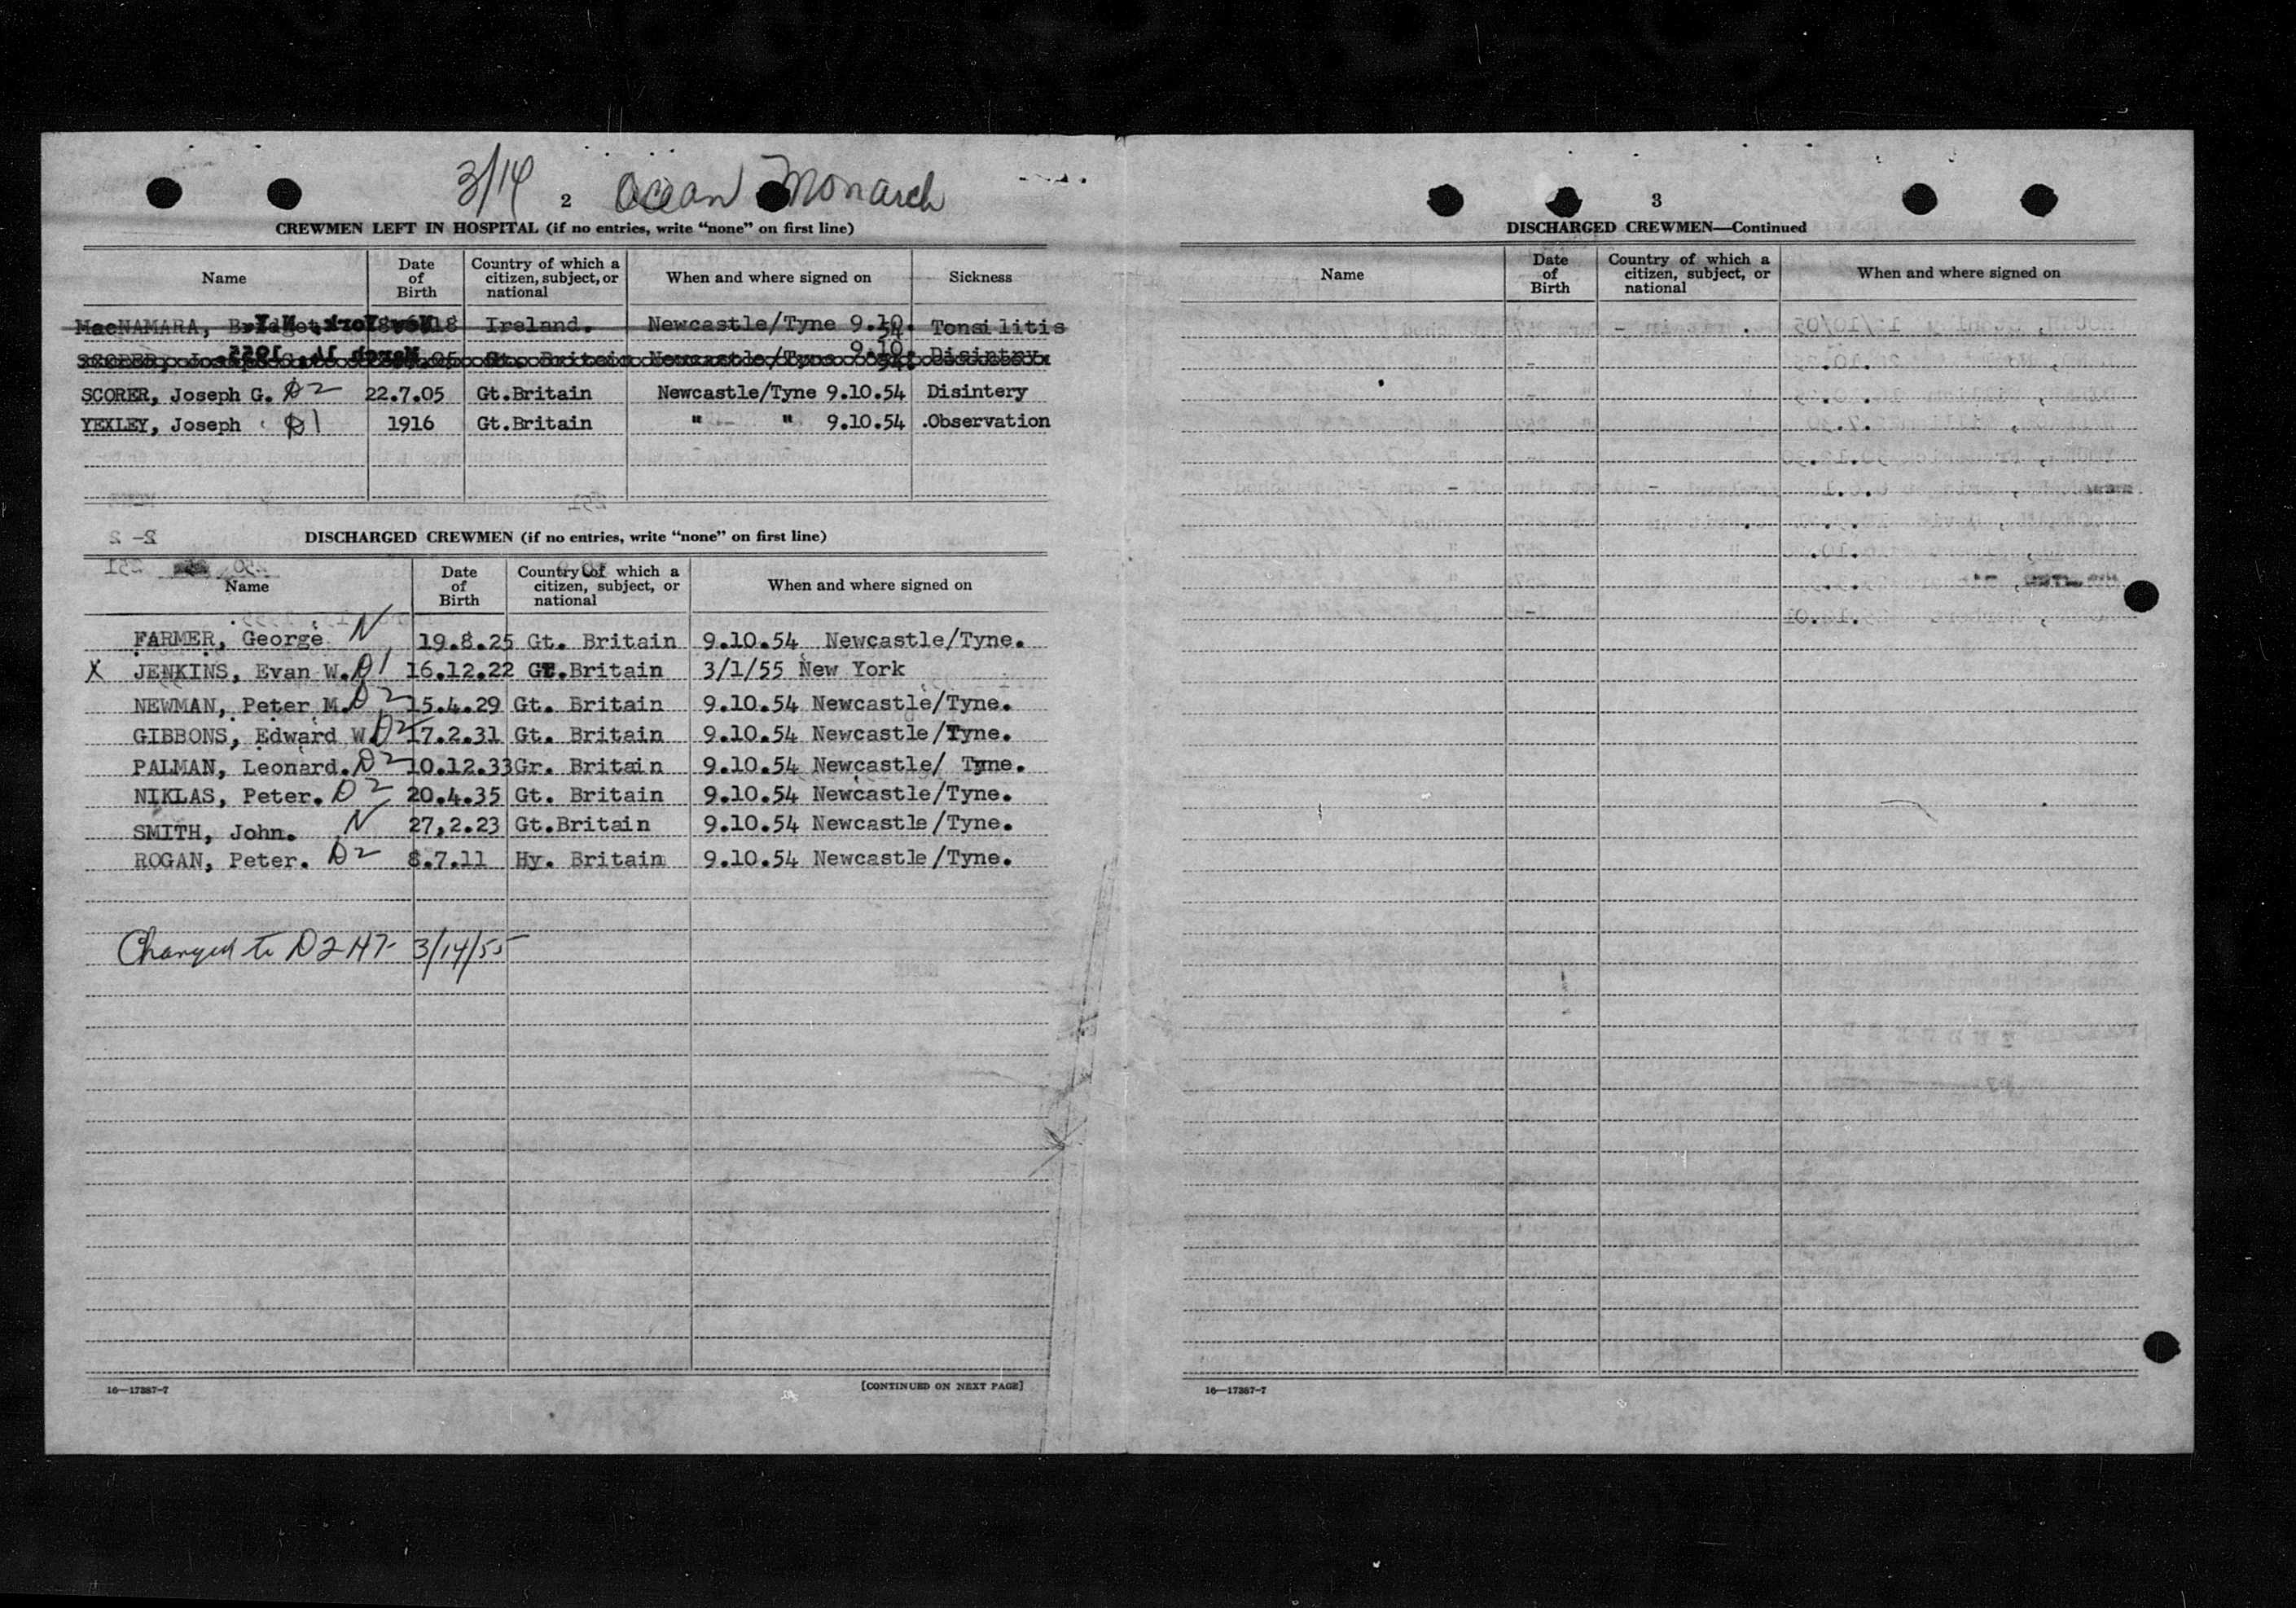 3/14 2 Ocean Monarch
CREWMEN LEFT IN HOSPITAL (if no entries, write “none” on first line)
Name Date of Birth Country of which a citizen, subject, or national When and where signed on Sickness
MacNAMARA, Bridget 18 Ireland. Newcastle/Tyne 9.10.54 Tonsilitis
SCORER, Gt. Britain Newcastle/Tyne 9.10.54. Disintry
SCORER, Joseph G. D2 22.7.05 Gt.Britain Newcastle/Tyne 9.10.54 Disintery
YEXLEY, Joseph D1 1916 Gt.Britain " " 9.10.54 .Observation
DISCHARGED CREWMEN (if no entries, write “none” on first line)
Name Date of Birth Country of which a citizen, subject, or national When and where signed on
FARMER, George N 19.8.25 Gt. Britain 9.10.54 Newcastle/Tyne.
X JENKINS, Evan W. D1 16.12.22 Gt.Britain 3/1/55 New York
NEWMAN, Peter M. D2 15.4.29 Gt. Britain 9.10.54 Newcastle/Tyne.
GIBBONS, Edward W. D2 17.2.31 Gt. Britain 9.10.54 Newcastle/Tyne.
PALMAN, Leonard. D2 10.12.33 Gr. Britain 9.10.54 Newcastle/ Tyne.
NIKLAS, Peter. D2 20.4.35 Gt. Britain 9.10.54 Newcastle/Tyne.
SMITH, John. N 27,2.23 Gt.Britain 9.10.54 Newcastle/Tyne.
ROGAN, Peter. D2 8.7.11 Hy. Britain 9.10.54 Newcastle/Tyne.
Changed to D2 3/14/55
16—17387-7 [CONTINUED ON NEXT PAGE]
3
DISCHARGED CREWMEN—Continued
Name Date of Birth Country of which a citizen, subject, or national When and where signed on
16—17387-7